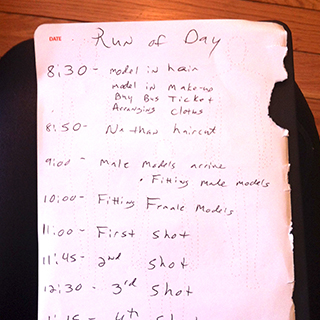 DATE
Run of Day
8:30 - model in hair
model in Make-up
Buy Bus Ticket
Arranging Cloths
8:50 - Nathan haircut
9:00 - Male Models arrive
• Fitting male models
10:00 - Fitting Female Models
11:00 - First Shot
11:45 - 2nd Shot
12:30 - 3rd Shot
4th